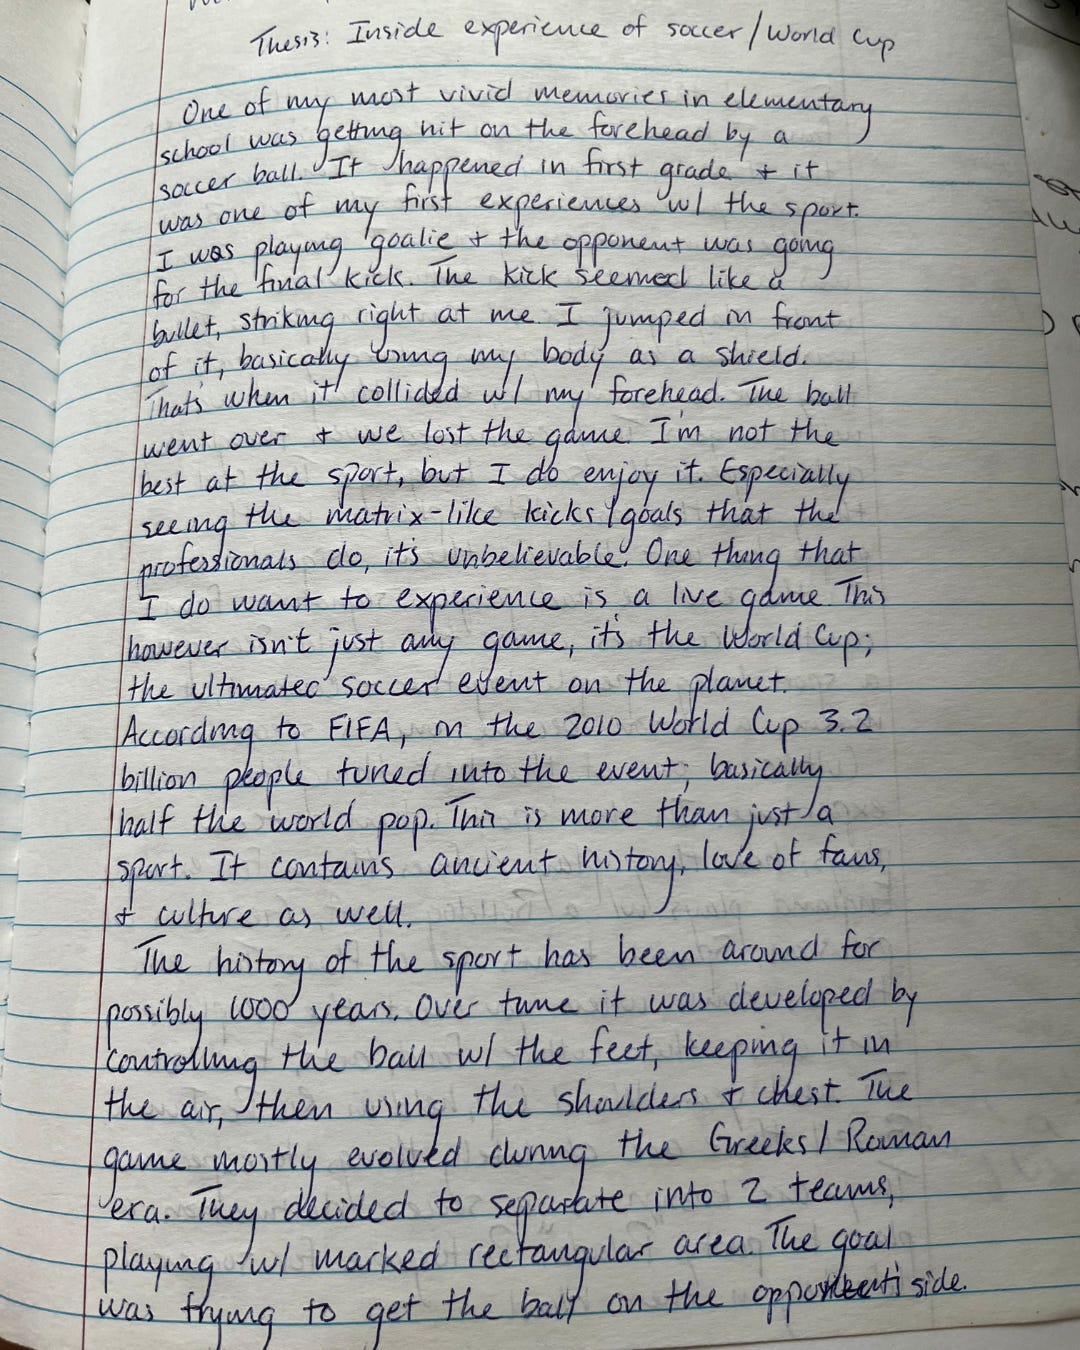 Thesis: Inside experience of soccer/World Cup
One of my most vivid memories in elementary
school was getting hit on the forehead by a
soccer ball. It happened in first grade + it
was one of my first experiences w/ the sport.
I was playing goalie + the opponent was going
for the final kick. The kick seemed like a
bullet, striking right at me. I jumped in front
of it, basically using my body as a shield.
Thats when it collided w/ my forehead. The ball
went over + we lost the game. I'm not the
best at the sport, but I do enjoy it. Especially
seeing the matrix-like kicks/goals that the
professionals do, it's unbelievable. One thing that
I do want to experience is a live game. This
however isn't just any game, it's the World Cup;
the ultimate soccer event on the planet.
According to FIFA, in the 2010 World Cup 3.2
billion people tuned into the event; basically
half the world pop. This is more than just a
sport. It contains ancient history, love of fans,
+ culture as well.
The history of the sport has been around for
possibly 1000 years. Over time it was developed by
controlling the ball w/ the feet, keeping it in
the air, then using the shoulders + chest. The
game mostly evolved during the Greeks/Roman
era. They decided to separate into 2 teams,
playing w/ marked rectangular area. The goal
was trying to get the ball on the opponent's side.